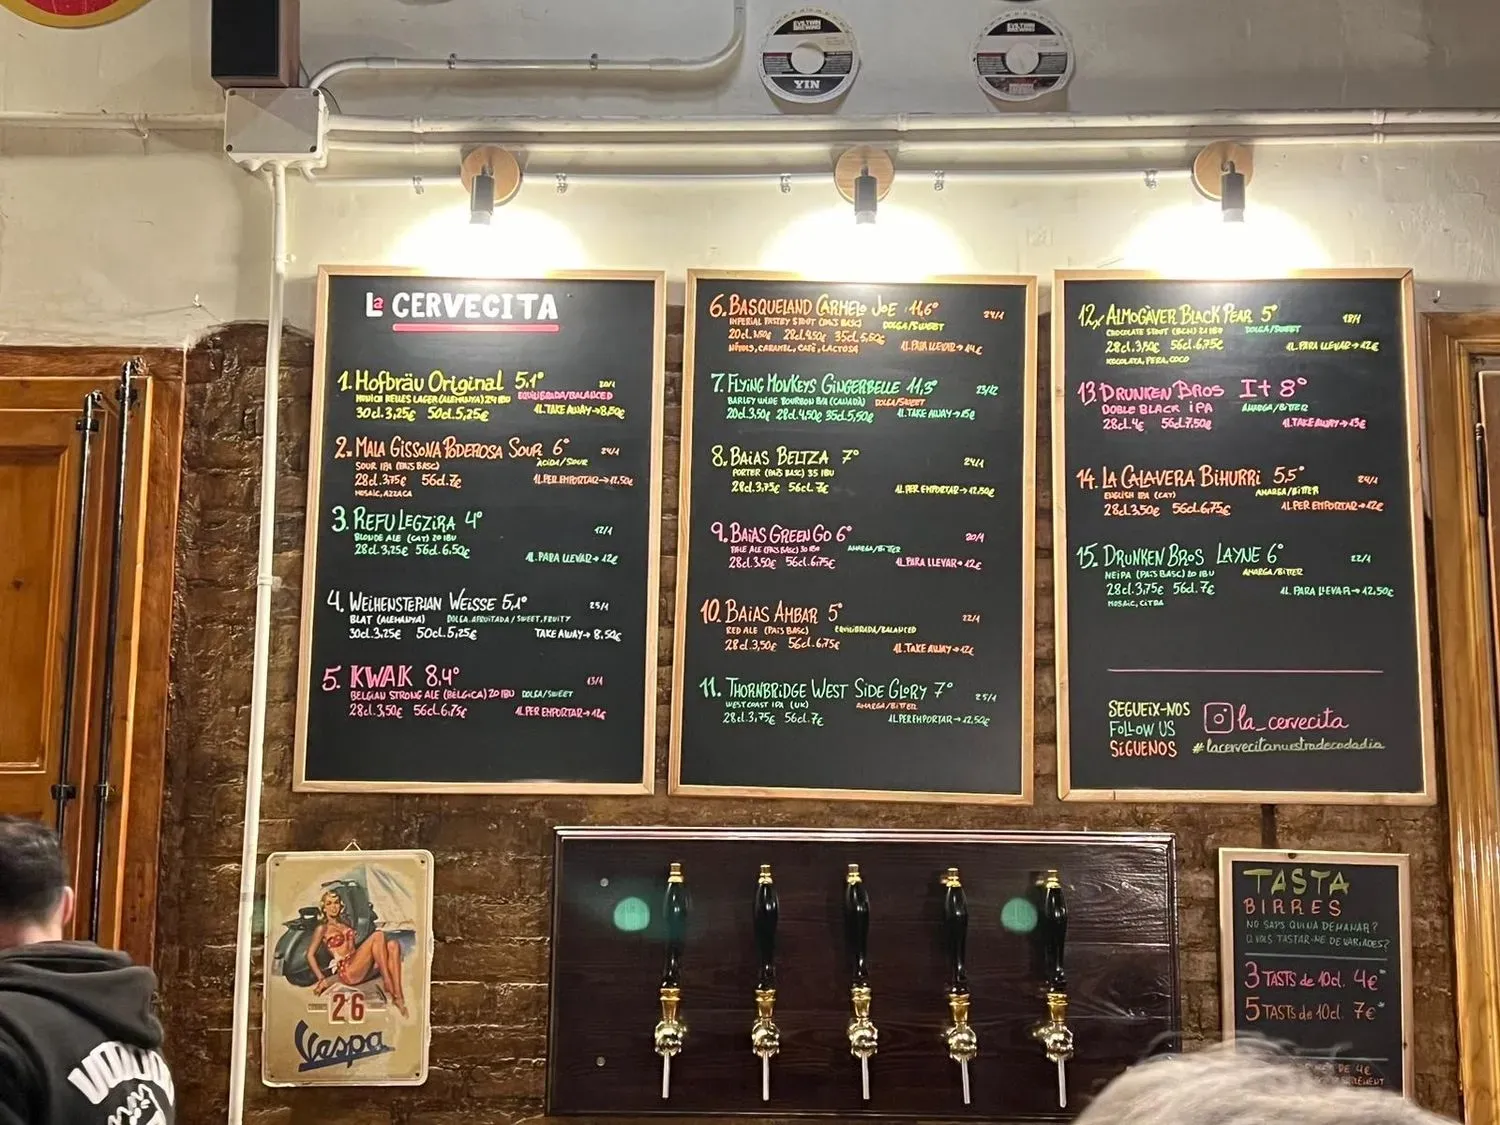 EVIL TWIN
BREWING
YIN
EVIL TWIN
BREWING
La CERVECITA
1. Hofbräu Original 5,1° 20/1
MUNICH HELLES LAGER (ALEMANYA) 24 IBU EQUILIBRADA/BALANCED
30cl. 3,25€ 50cl. 5,25€ 1L. TAKE AWAY → 8,50€
2. MALA GISSONA PODEROSA SOUR 6° 24/1
SOUR IPA (PAÍS BASC) ÀCIDA/SOUR
28cl. 3,75€ 56cl. 7€ 1L. PER EMPORTAR → 12,50€
MOSAIC, AZZACA
3. REFU LEGZIRA 4° 12/1
BLONDE ALE (CAT) 20 IBU
28cl. 3,25€ 56cl. 6,50€ 1L. PARA LLEVAR → 12€
4. WEIHENSTEPHAN WEISSE 5,1° 25/1
BLAT (ALEMANYA) DOLÇA, AFRUITADA / SWEET, FRUITY
30cl. 3,25€ 50cl. 5,25€ TAKE AWAY → 8,50€
5. KWAK 8,4° 13/1
BELGIAN STRONG ALE (BÈLGICA) 20 IBU DOLÇA/SWEET
28cl. 3,50€ 56cl. 6,75€ 1L. PER EMPORTAR → 12€
6. BASQUELAND CARMELO JOE 11,6° 24/1
IMPERIAL PASTRY STOUT (PAÍS BASC) DOLÇA/SWEET
20cl. 3,50€ 28cl. 4,50€ 35cl. 5,50€ 1L. PARA LLEVAR → 14€
NIBOLS, CARAMEL, CAFÈ, LACTOSA
7. FLYING MONKEYS GINGERBELLE 11,3° 23/12
BARLEY WINE BOURBON B/A (CANADÀ) DOLÇA/SWEET
20cl. 3,50€ 28cl. 4,50€ 35cl. 5,50€ 1L. TAKE AWAY → 15€
8. BAIAS BELTZA 7° 24/1
PORTER (PAÍS BASC) 35 IBU
28cl. 3,75€ 56cl. 7€ 1L. PER EMPORTAR → 12,50€
9. BAIAS GREEN GO 6° 20/1
PALE ALE (PAÍS BASC) 30 IBU AMARGA/BITTER
28cl. 3,50€ 56cl. 6,75€ 1L. PARA LLEVAR → 12€
10. BAIAS AMBAR 5° 22/1
RED ALE (PAÍS BASC) EQUILIBRADA/BALANCED
28cl. 3,50€ 56cl. 6,75€ 1L. TAKE AWAY → 12€
11. THORNBRIDGE WEST SIDE GLORY 7° 25/1
WEST COAST IPA (UK) AMARGA/BITTER
28cl. 3,75€ 56cl. 7€ 1L. PER EMPORTAR → 12,50€
12. ALMOGÀVER BLACK PEAR 5° 18/1
CHOCOLATE STOUT (BCN) 21 IBU DOLÇA/SWEET
28cl. 3,50€ 56cl. 6,75€ 1L. PARA LLEVAR → 12€
XOCOLATA, PERA, COCO
13. DRUNKEN BROS It 8°
DOBLE BLACK IPA AMARGA/BITTER
28cl. 4€ 56cl. 7,50€ 1L. TAKE AWAY → 13€
14. LA CALAVERA BIHURRI 5,5° 24/1
ENGLISH IPA (CAT) AMARGA/BITTER
28cl. 3,50€ 56cl. 6,75€ 1L PER EMPORTAR → 12€
15. DRUNKEN BROS LAYNE 6° 22/1
NEIPA (PAÍS BASC) 20 IBU AMARGA/BITTER
28cl. 3,75€ 56cl. 7€ 1L. PARA LLEVAR → 12,50€
MOSAIC, CITRA
SEGUEIX-NOS la_cervecita
FOLLOW US
SÍGUENOS #lacervecitanuestradecadadia
26
Vespa
TASTA
BIRRES
NO SAPS QUINA DEMANAR?
O VOLS TASTAR-NE DE VARIADES?
3 TASTS de 10cl. 4€*
5 TASTS de 10cl. 7€*
DE 4€